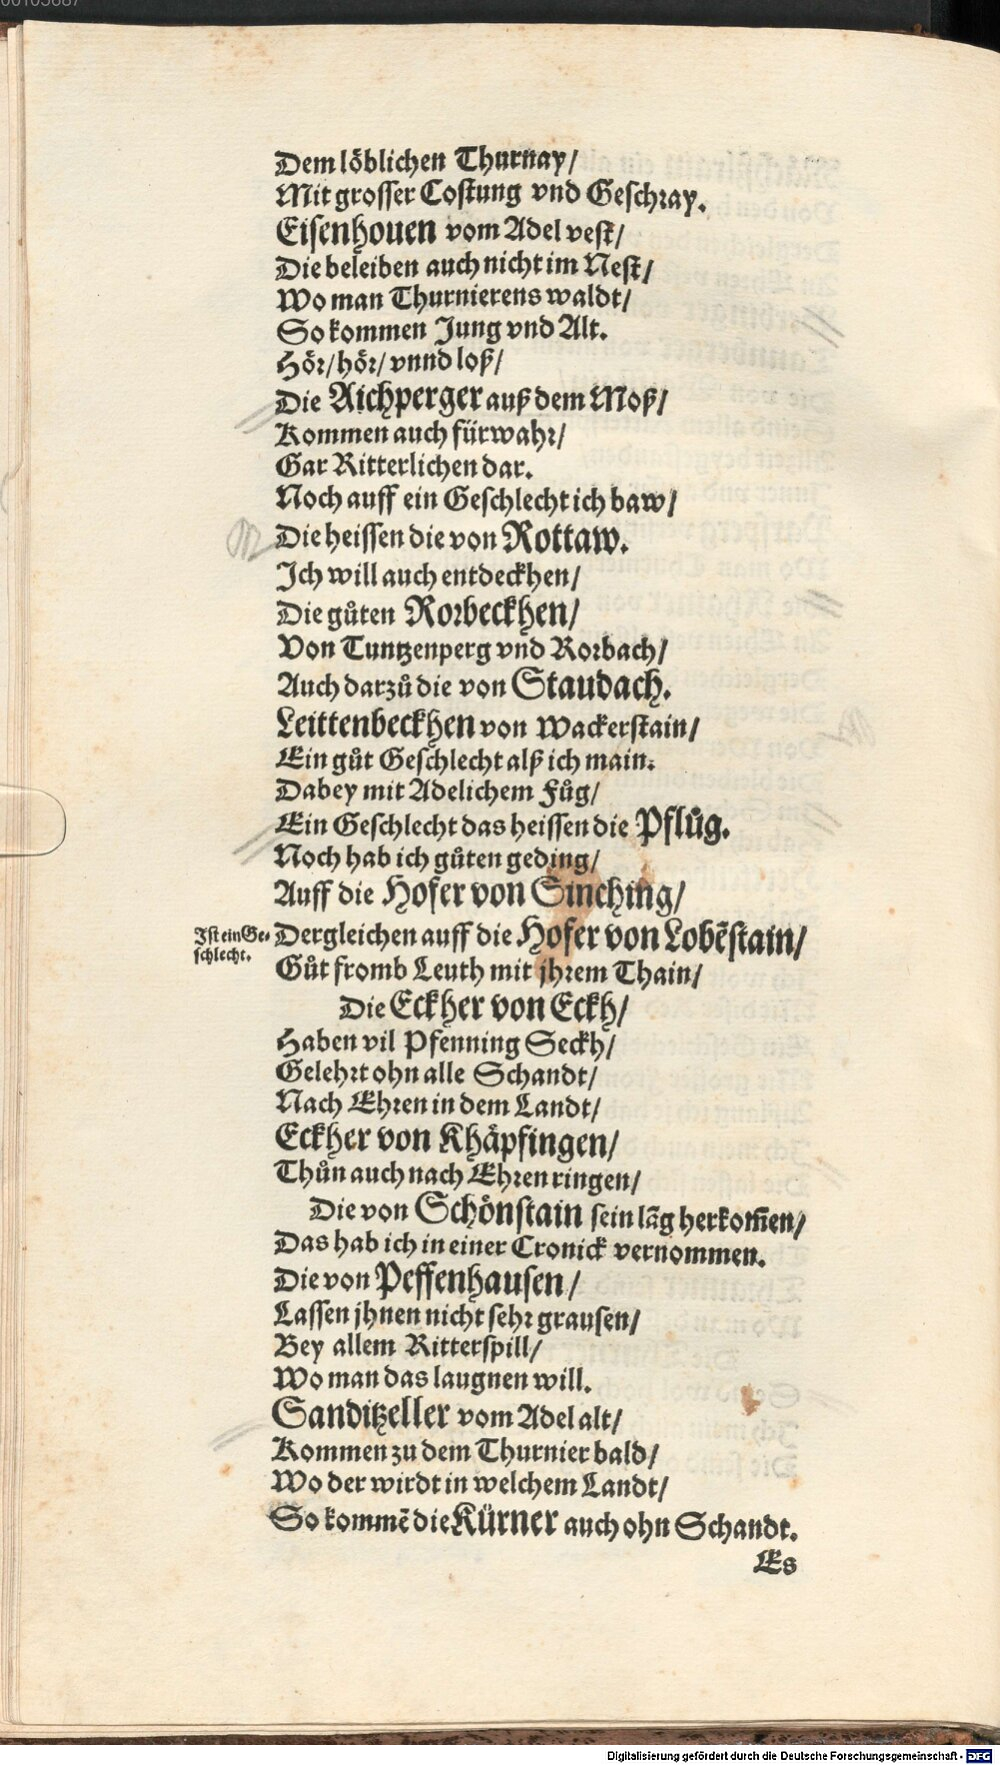 Dem löblichen Thurnay/
Mit grosser Costung vnd Geschray.
Eisenhouen vom Adel vest/
Die beleiben auch nicht im Nest/
Wo man Thurnierens waldt/
So kommen Jung vnd Alt.
Hör/hör/vnnd loß/
Die Aichperger auß dem Moß/
Kommen auch fürwahr/
Gar Ritterlichen dar.
Noch auff ein Geschlecht ich baw/
Die heissen die von Rottaw.
Ich will auch entdeckhen/
Die gůten Rorbeckhen/
Von Tuntzenperg vnd Rorbach/
Auch darzů die von Staudach.
Leittenbeckhen von Wackerstain/
Ein gůt Geschlecht alß ich main.
Dabey mit Adelichem Fůg/
Ein Geschlecht das heissen die Pflůg.
Noch hab ich gůten geding/
Auff die Hofer von Sinching/
Ist ein Ge-
schlecht.
Dergleichen auff die Hofer von Lobẽstain/
Gůt fromb Leuth mit jhrem Thain/
Die Eckher von Eckh/
Haben vil Pfenning Seckh/
Gelehrt ohn alle Schandt/
Nach Ehren in dem Landt/
Eckher von Khäpfingen/
Thůn auch nach Ehren ringen/
Die von Schönstain sein lãg herkom̃en/
Das hab ich in einer Cronick vernommen.
Die von Peffenhausen/
Lassen jhnen nicht sehr grausen/
Bey allem Ritterspill/
Wo man das laugnen will.
Sanditzeller vom Adel alt/
Kommen zu dem Thurnier bald/
Wo der wirdt in welchem Landt/
So kommẽ die Kürner auch ohn Schandt.
Es
Digitalisierung gefördert durch die Deutsche Forschungsgemeinschaft - DFG